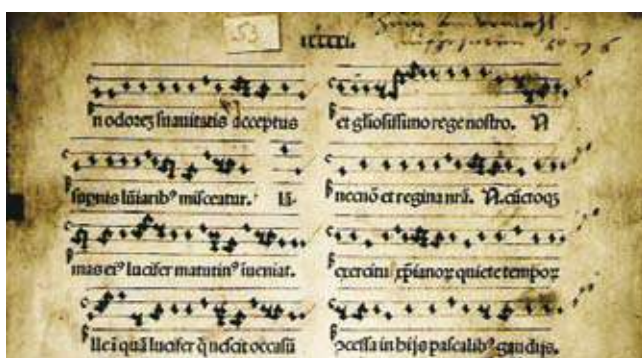 53
n odorēꝫ suauitatis acceptus
supnis lūīarib⁹ misceatur.
mas ei⁹ lucifer matutin⁹ īueniat.
lucifer q̄ nescit occasū
et gl̄iosissimo rege nostro. N
necnō et regina nrā. N. cūctoqꝫ
exercitu xp̄ianoꝝ quiete tempoꝝ
ↄcessa in hijs pascalib⁹ gaudijs.